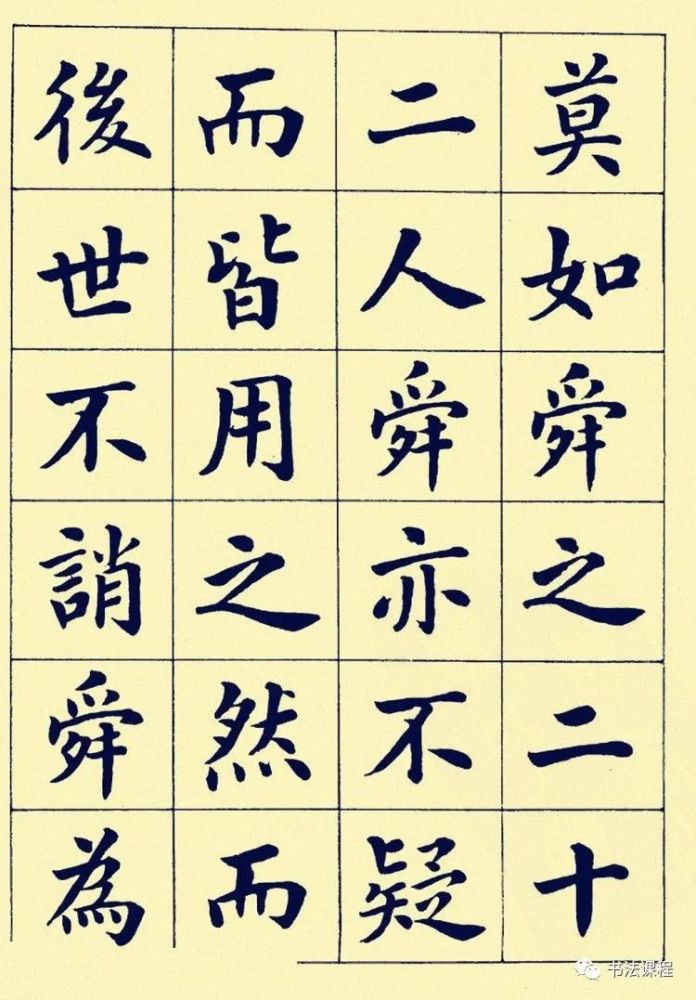 莫如舜之二十
二人舜亦不疑
而皆用之然而
後世不誚舜為
书法课程